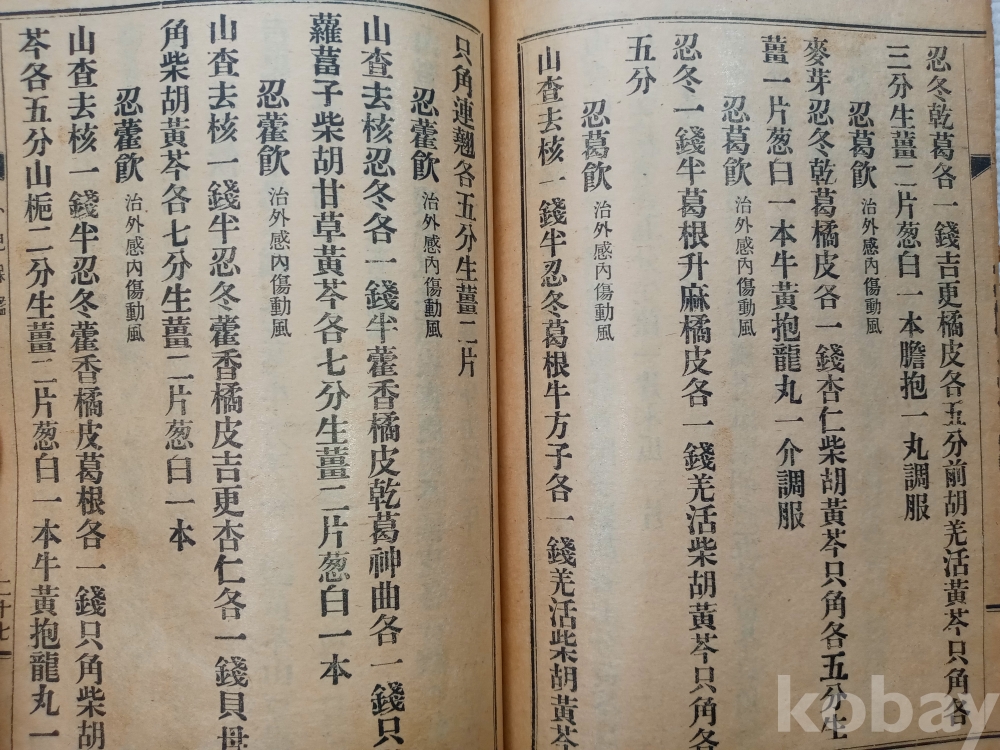 忍冬乾葛各一錢吉更橘皮各五分前胡羌活黃芩只角各
三分生薑二片葱白一本膽抱一丸調服
忍葛飮 治外感內傷動風
麥芽忍冬乾葛橘皮各一錢杏仁柴胡黃芩只角各五分生
薑一片葱白一本牛黃抱龍丸一介調服
忍葛飮 治外感內傷動風
忍冬一錢半葛根升麻橘皮各一錢羌活柴胡黃芩只角各
五分
忍葛飮 治外感內傷動風
山査去核一錢半忍冬葛根牛方子各一錢羌活柴胡黃芩
只角連翹各五分生薑二片
忍藿飮 治外感內傷動風
山査去核忍冬各一錢半藿香橘皮乾葛神曲各一錢只
蘿葍子柴胡甘草黃芩各七分生薑二片葱白一本
忍藿飮 治外感內傷動風
山査去核一錢半忍冬藿香橘皮吉更杏仁各一錢貝母
角柴胡黃芩各七分生薑二片葱白一本
忍藿飮 治外感內傷動風
山査去核一錢半忍冬藿香橘皮葛根各一錢只角柴胡
芩各五分山梔二分生薑二片葱白一本牛黃抱龍丸一
二十七
kobay